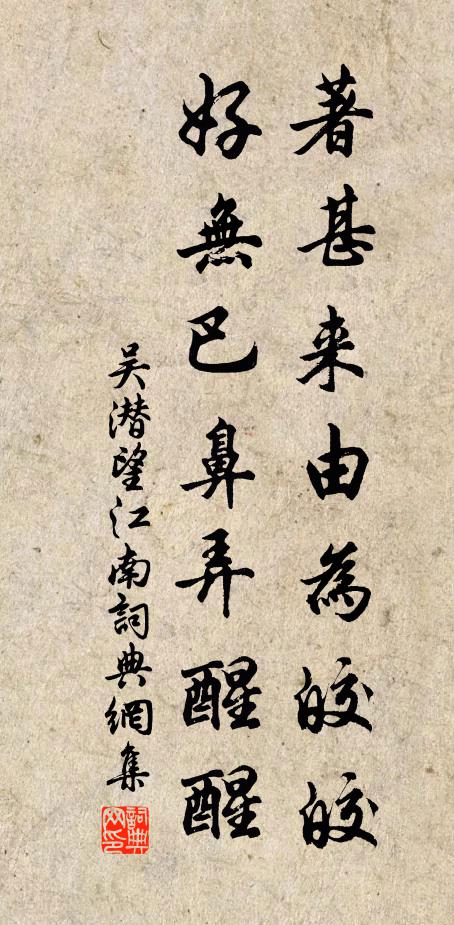 著甚来由為皎皎
好無巴鼻弄醒醒
吴潜望江南詞典網集
詞典網印